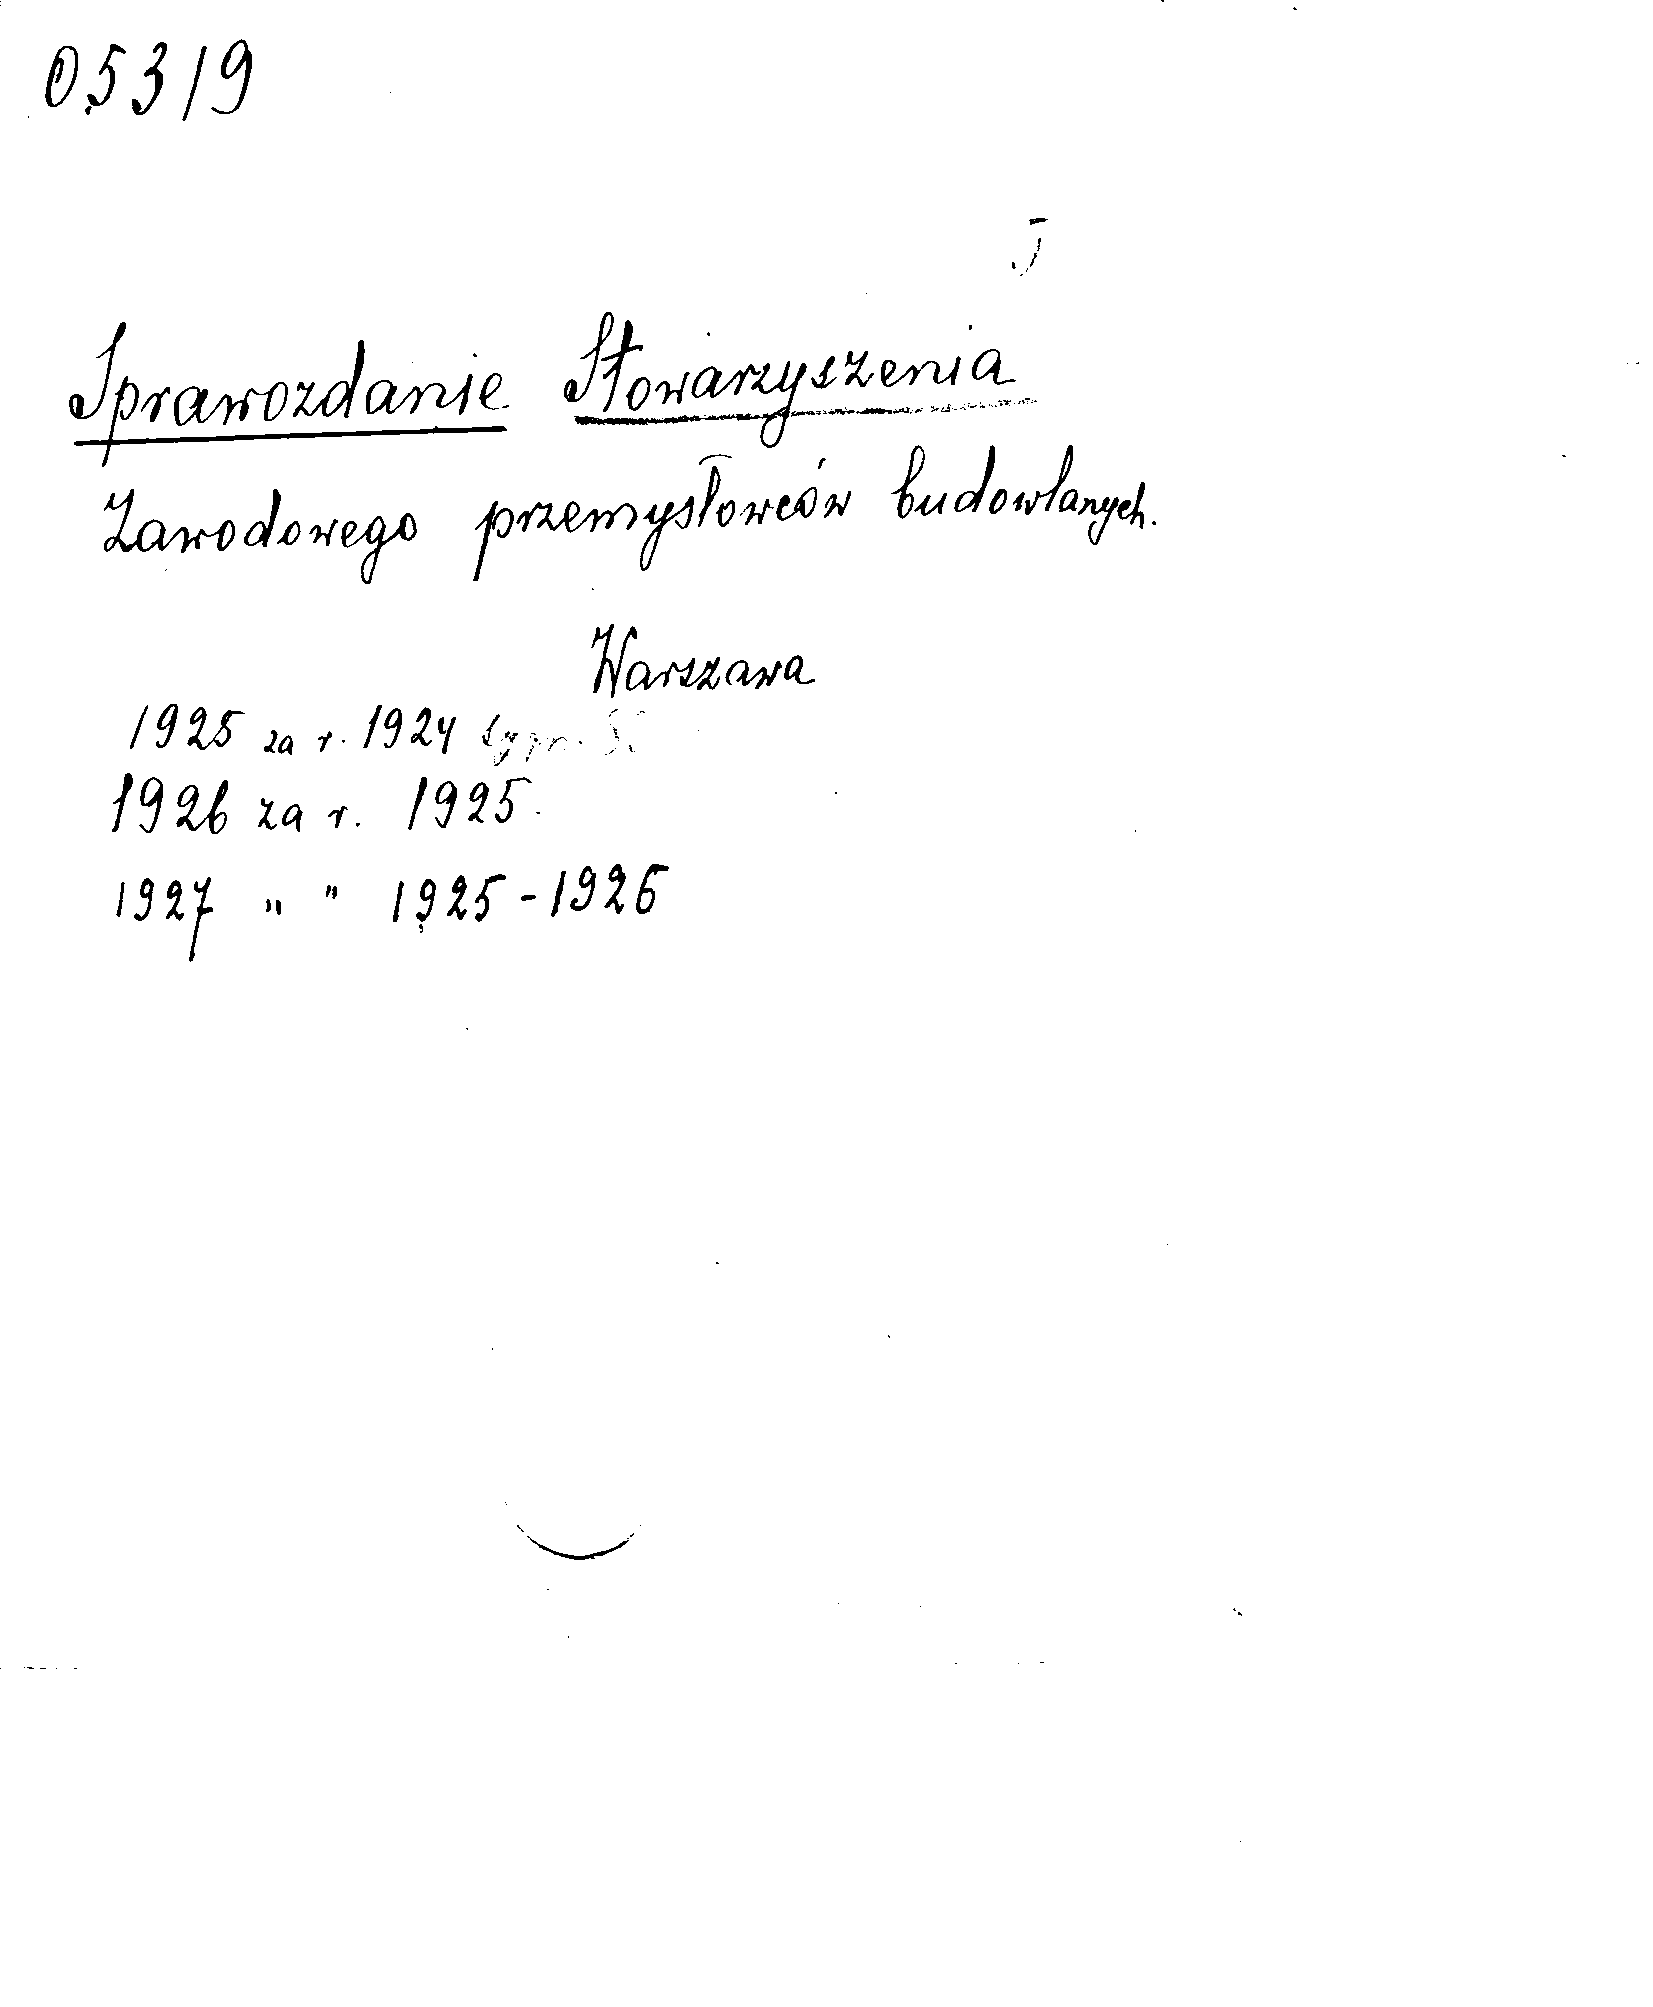 05319
Sprawozdanie Stowarzyszenia
Zawodowego przemysłowców budowlanych.
Warszawa
1925 za r. 1924
1926 za r. 1925
1927 " " 1925-1926